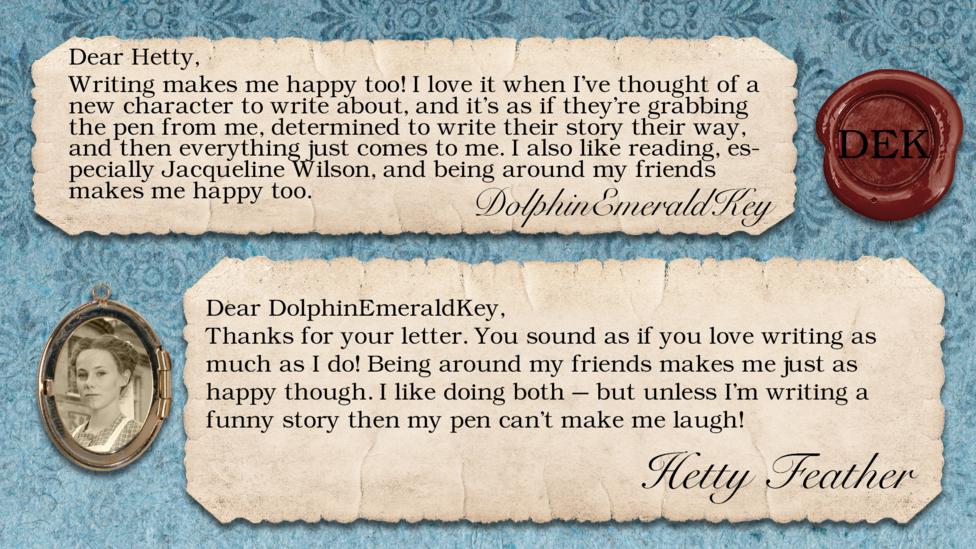 Dear Hetty,
Writing makes me happy too! I love it when I've thought of a
new character to write about, and it's as if they're grabbing
the pen from me, determined to write their story their way,
and then everything just comes to me. I also like reading, es-
pecially Jacqueline Wilson, and being around my friends
makes me happy too.
DolphinEmeraldKey
DEK
Dear DolphinEmeraldKey,
Thanks for your letter. You sound as if you love writing as
much as I do! Being around my friends makes me just as
happy though. I like doing both – but unless I'm writing a
funny story then my pen can't make me laugh!
Hetty Feather